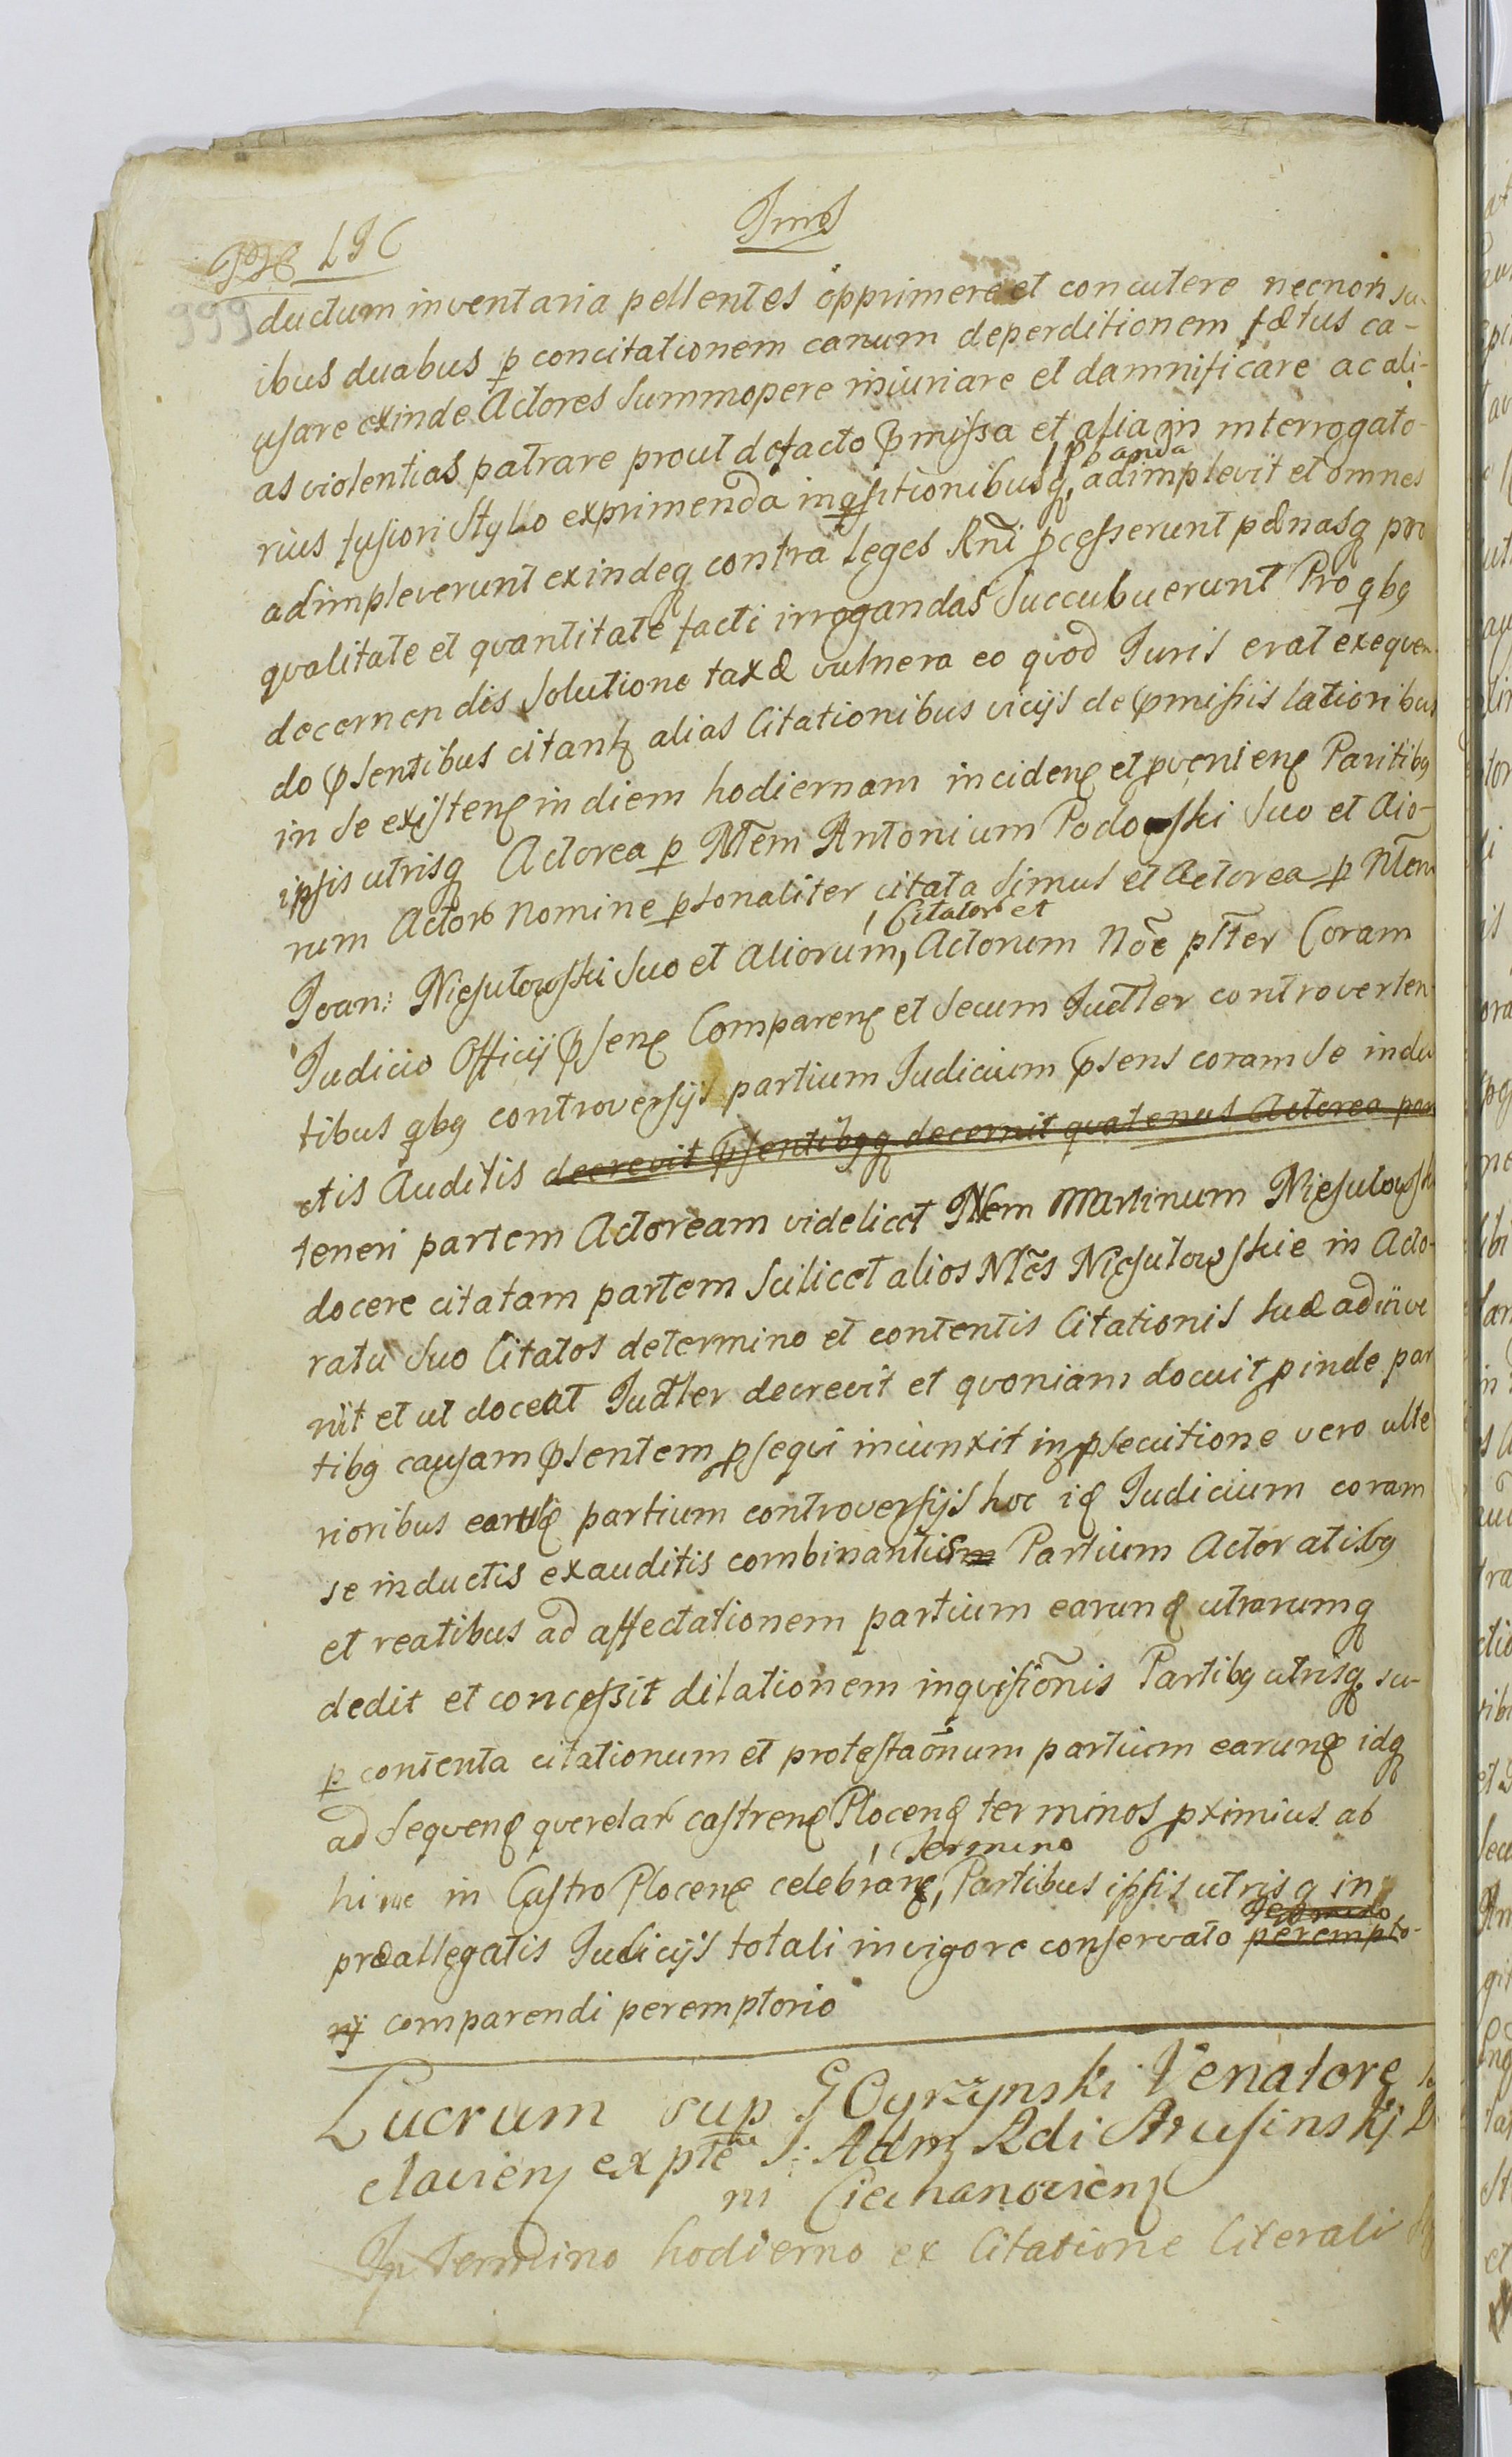 Tmes
LIC
999
ductum inventaria pellentes opprimere et concutere necnon su-
ibus duabus p concitationem canum deperditionem fætus ca-
usare exinde Actores summopere iniuriare et damnificare ac ali-
as violentias patrare prout defacto pmissa et alia in interrogato-
rius fusiori Styllo exprimenda inqsitionibusq, adimplevit et omnes
adimpleverunt exindeq contra leges Rni pcesserunt pænasq pro
qvalitate et qvantitate facti irrogandas succubuerunt Pro qbg
decernendis solutione taxæ vulnera eo qvod Iuris erat exequen-
do psentibus citant alias Citationibus vicijs de pmissis latioribus
in se existen in diem hodiernam inciden et pvenien Partibg
ipsis utrisq Actorea p Ntem Antonium Podowski suo et alio-
rum Actor nomine psonaliter citata simul et Actorea p Ntem
Citator et
Ioan: Niesulowski suo et aliorum, Actorum Noe ptter Coram
Iudicio Officij psen Comparen et secum Iudtter controverten-
tibus qbg controversijs partium Iudicium psens coram se indu-
ctis Auditis decrevit psentibgq decernit qvatenus Actorea par
teneri partem Actoream videlicet Ntem Martinum Niesulowski
docere citatam partem scilicet alios Ntes Niesulowskie in Acto-
ratu suo Citatos determino et contentis Citationis suæ adinve
nit et ut doceat Iudtter decrevit et qvoniam docuit pinde par
tibg causam psentem psequi iniunxit in psecutione vero ulte
rioribus partium controversijs hoc id Iudicium coram
se inductis exauditis combinantiis Partium Actoratibg
et reatibus ad affectationem partium earund utrarumq
dedit et concessit dilationem inqvisionis Partibg utrisq su-
p contenta citationum et protestaonum partium earund idq
ad seqven querelar castren Plocen terminos pximius ab
Termino
hinc in Castro Plocen celebran, Partibus ipsis utrisq in
præallegatis Iudicijs totali in vigore conservato perempto-
rij comparendi peremptorio
Lucrum sup G Oyrzynski Venatore
clavien ex pte G: Adm Rdi Strusinskj
ni Ciechanovien
In Termino hodierno ex Citatione Literali